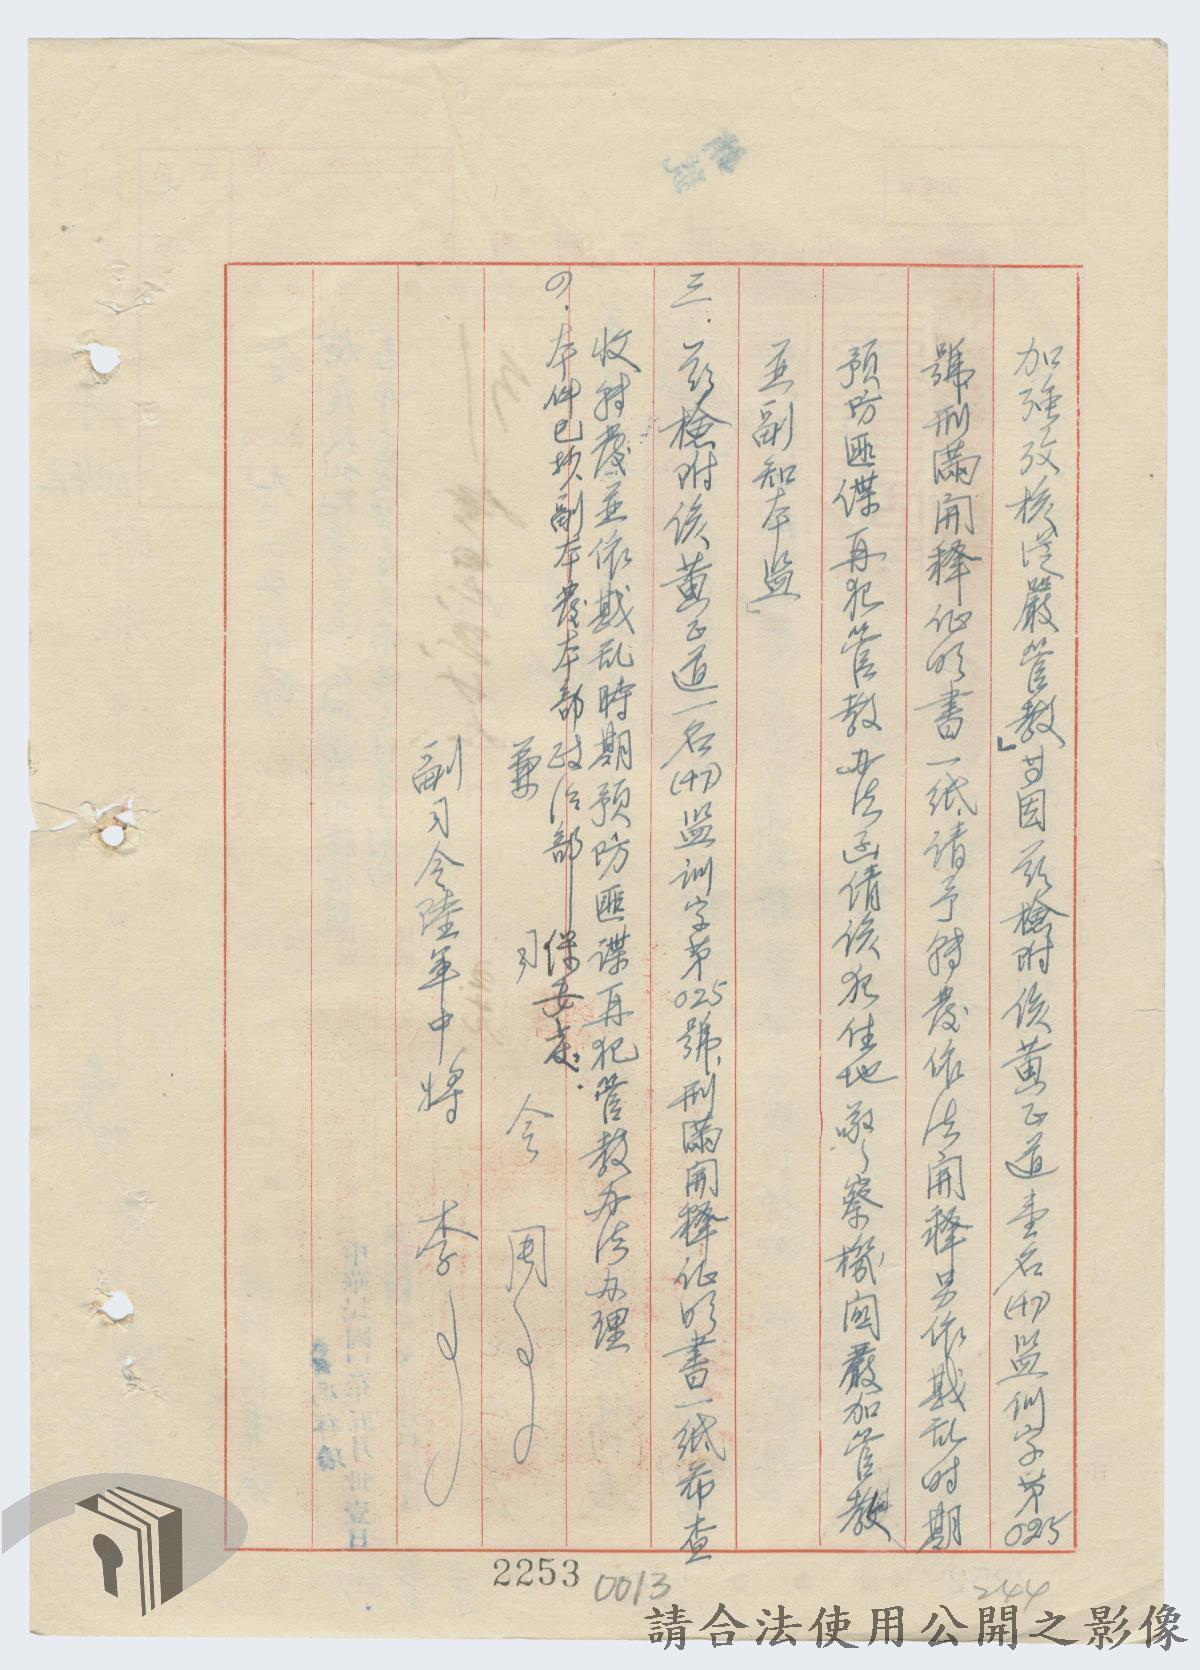 加強攷核從嚴管教」等因茲檢附該黃正道壹名(47)監訓字第025
號刑滿開釋証明書一紙請予轉發依法開釋另依戡乱時期
預防匪諜再犯管教办法函請該犯住地警察機関嚴加管教
並副知本監」
三.茲檢附該黃正道一名(47)監訓字第025號刑滿開釋証明書一紙希查
收轉發並依戡乱時期預防匪諜再犯管教办法办理
四.本件已抄副本發本部政治部保安處.
兼司令周
副司令陸軍中將李
2253
0013
244
請合法使用公開之影像